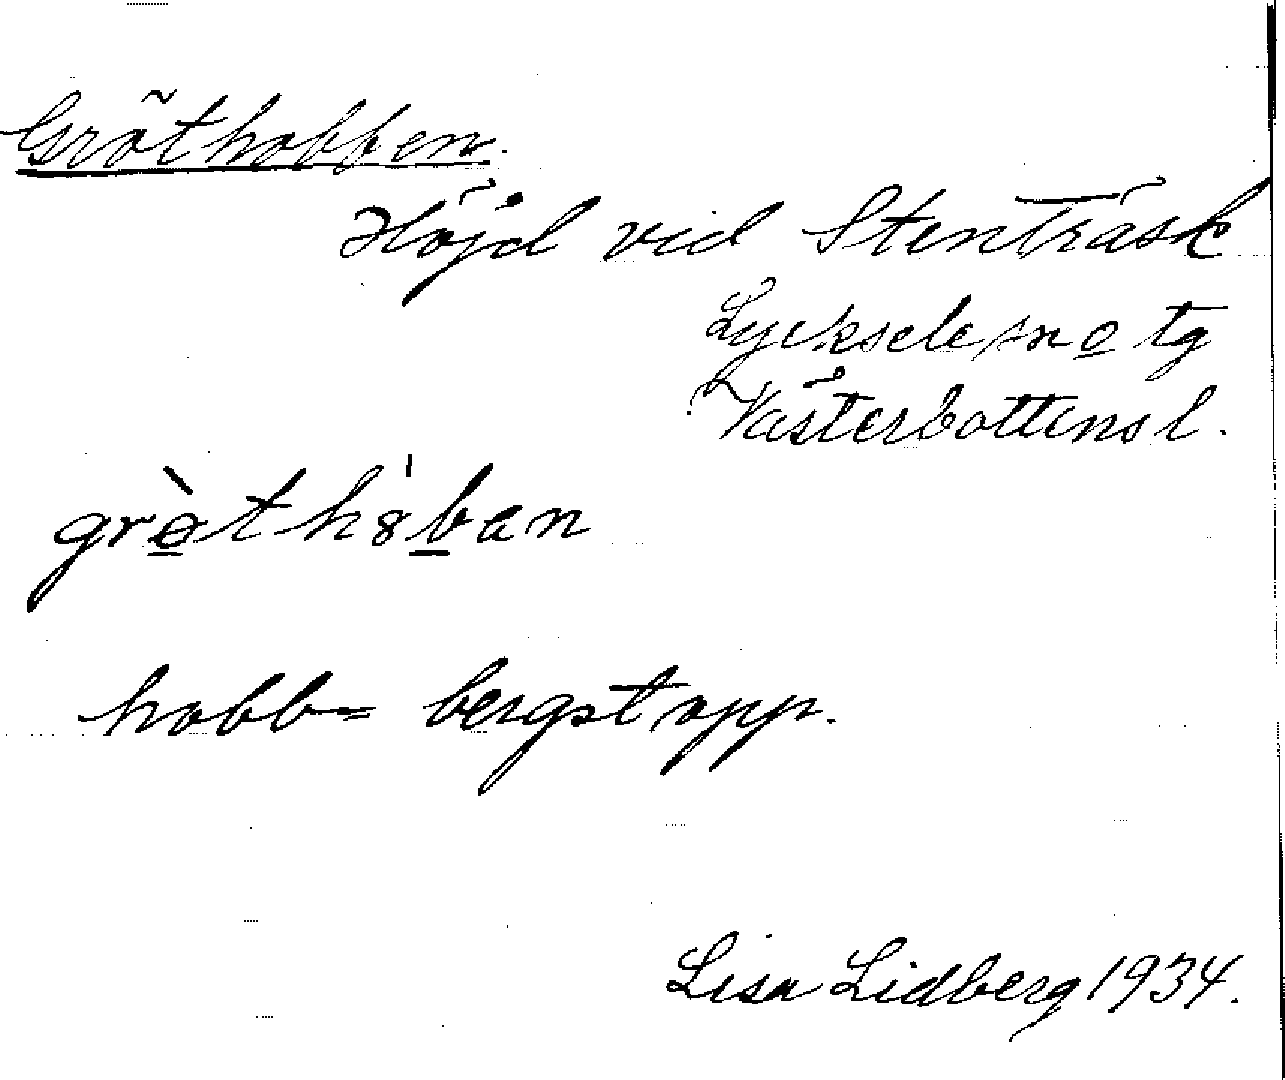 Gröthobben.
Höjd vid Stenträsk
Lycksele sn o tg
Västerbottens l.
grò̱thȯ́ḇan
hobb = bergstopp.
Lisa Lidberg 1934.